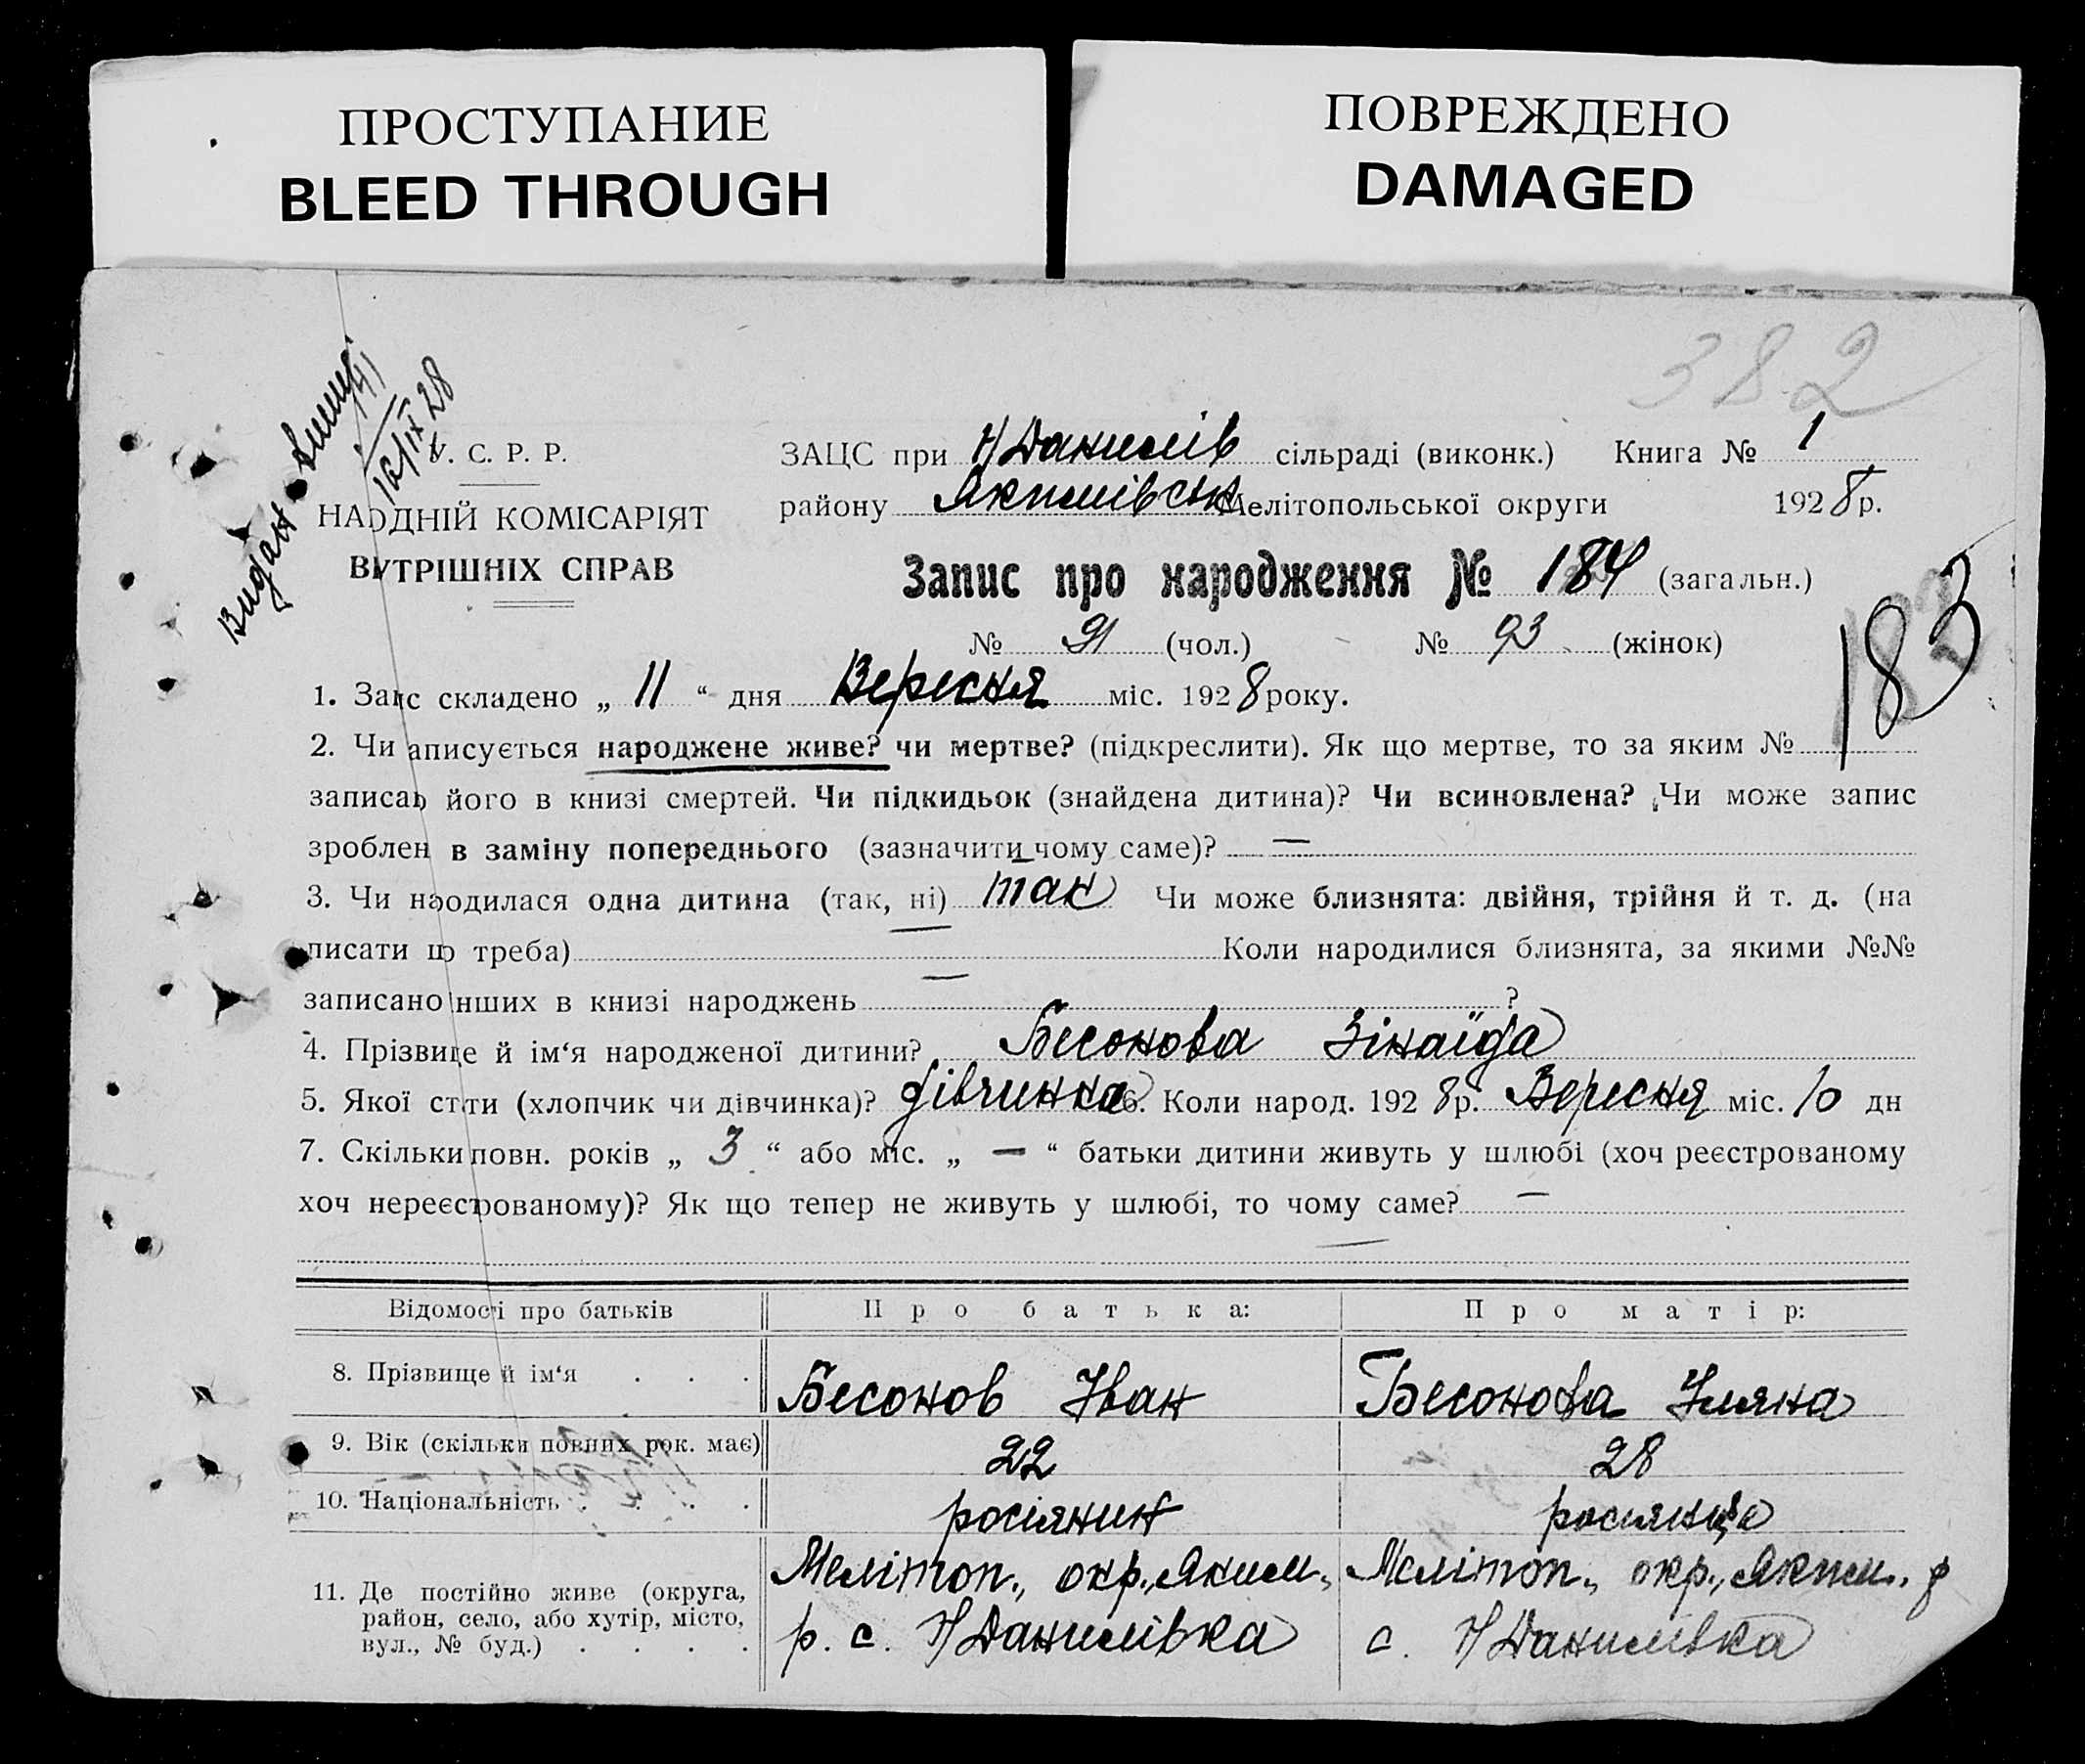 ПРОСТУПАНИЕ
BLEED THROUGH
ПОВРЕЖДЕНО
DAMAGED
382
Видан
/IX 28
У. С. Р. Р.
НАОДНІЙ КОМІСАРІЯТ
ВУТРІШНІХ СПРАВ
ЗАЦС при Н/Данилів сільраді (виконк.) Книга № 1
району Якимівськ Мелітопольської округи 1928 р.
Запис про народження № 184 (загальн.)
№ 91 (чол.) № 93 (жінок)
183
1. Заіс складено „ 11 “ дня Вересня міс. 1928 року.
2. Чи аписується народжене живе? чи мертве? (підкреслити). Як що мертве, то за яким №
записано його в книзі смертей. Чи підкидьок (знайдена дитина)? Чи всиновлена? Чи може запис
зроблен в заміну попереднього (зазначити чому саме)? —
3. Чи народилася одна дитина (так, ні) так Чи може близнята: двійня, трійня й т. д. (на
писати що треба) Коли народилися близнята, за якими №№
записано інших в книзі народжень — ?
4. Прізвище й ім‘я народженої дитини? Бесонова Зінаїда
5. Якої стати (хлопчик чи дівчинка)? дівчинка 6. Коли народ. 1928 р. Вересня міс. 10 дн
7. Скільки повн. років „ 3 “ або міс. „ — “ батьки дитини живуть у шлюбі (хоч реєстрованому
хоч нереєстрованому)? Як що тепер не живуть у шлюбі, то чому саме? —
Відомості про батьків Про батька: Про матір:
8. Прізвище й ім‘я . . . Бесонов Іван Бесонова Уляна
9. Вік (скільки повних рок. має) 22 28
10. Національність . . . . росіянин росіянка
11. Де постійно живе (округа, Мелітоп., окр., Яким., Мелітоп., окр., Яким. р
район, село, або хутір, місто, р. с. Н/Данилівка с. Н/Данилівка
вул., № буд.) . . . .